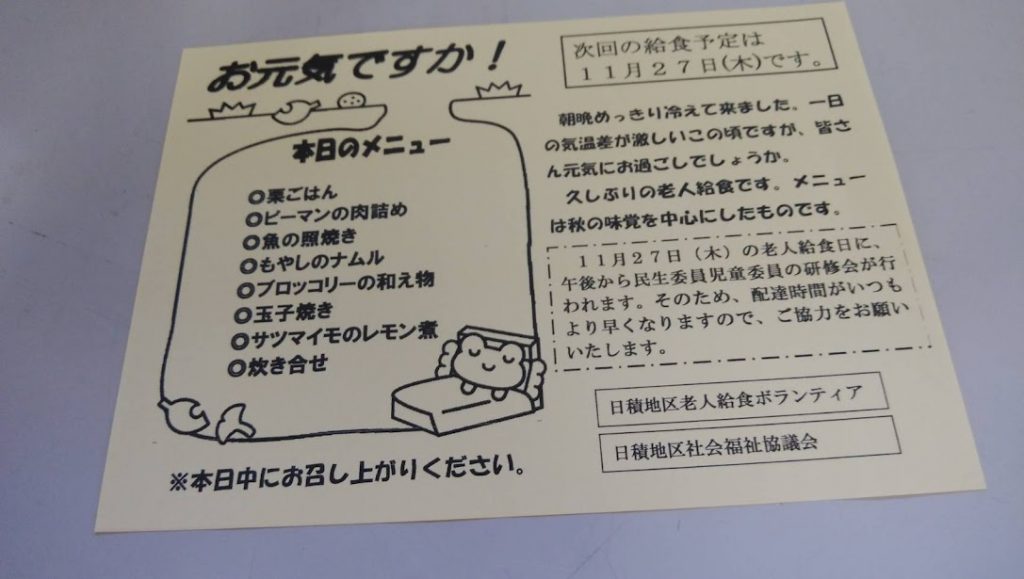 お元気ですか！
本日のメニュー
◎栗ごはん
◎ピーマンの肉詰め
◎魚の照焼き
◎もやしのナムル
◎ブロッコリーの和え物
◎玉子焼き
◎サツマイモのレモン煮
◎炊き合せ
※本日中にお召し上がりください。
次回の給食予定は
１１月２７日(木)です。
朝晩めっきり冷えて来ました。一日
の気温差が激しいこの頃ですが、皆さ
ん元気にお過ごしでしょうか。
久しぶりの老人給食です。メニュー
は秋の味覚を中心にしたものです。
１１月２７日（木）の老人給食日に、
午後から民生委員児童委員の研修会が行
われます。そのため、配達時間がいつも
より早くなりますので、ご協力をお願い
いたします。
日積地区老人給食ボランティア
日積地区社会福祉協議会